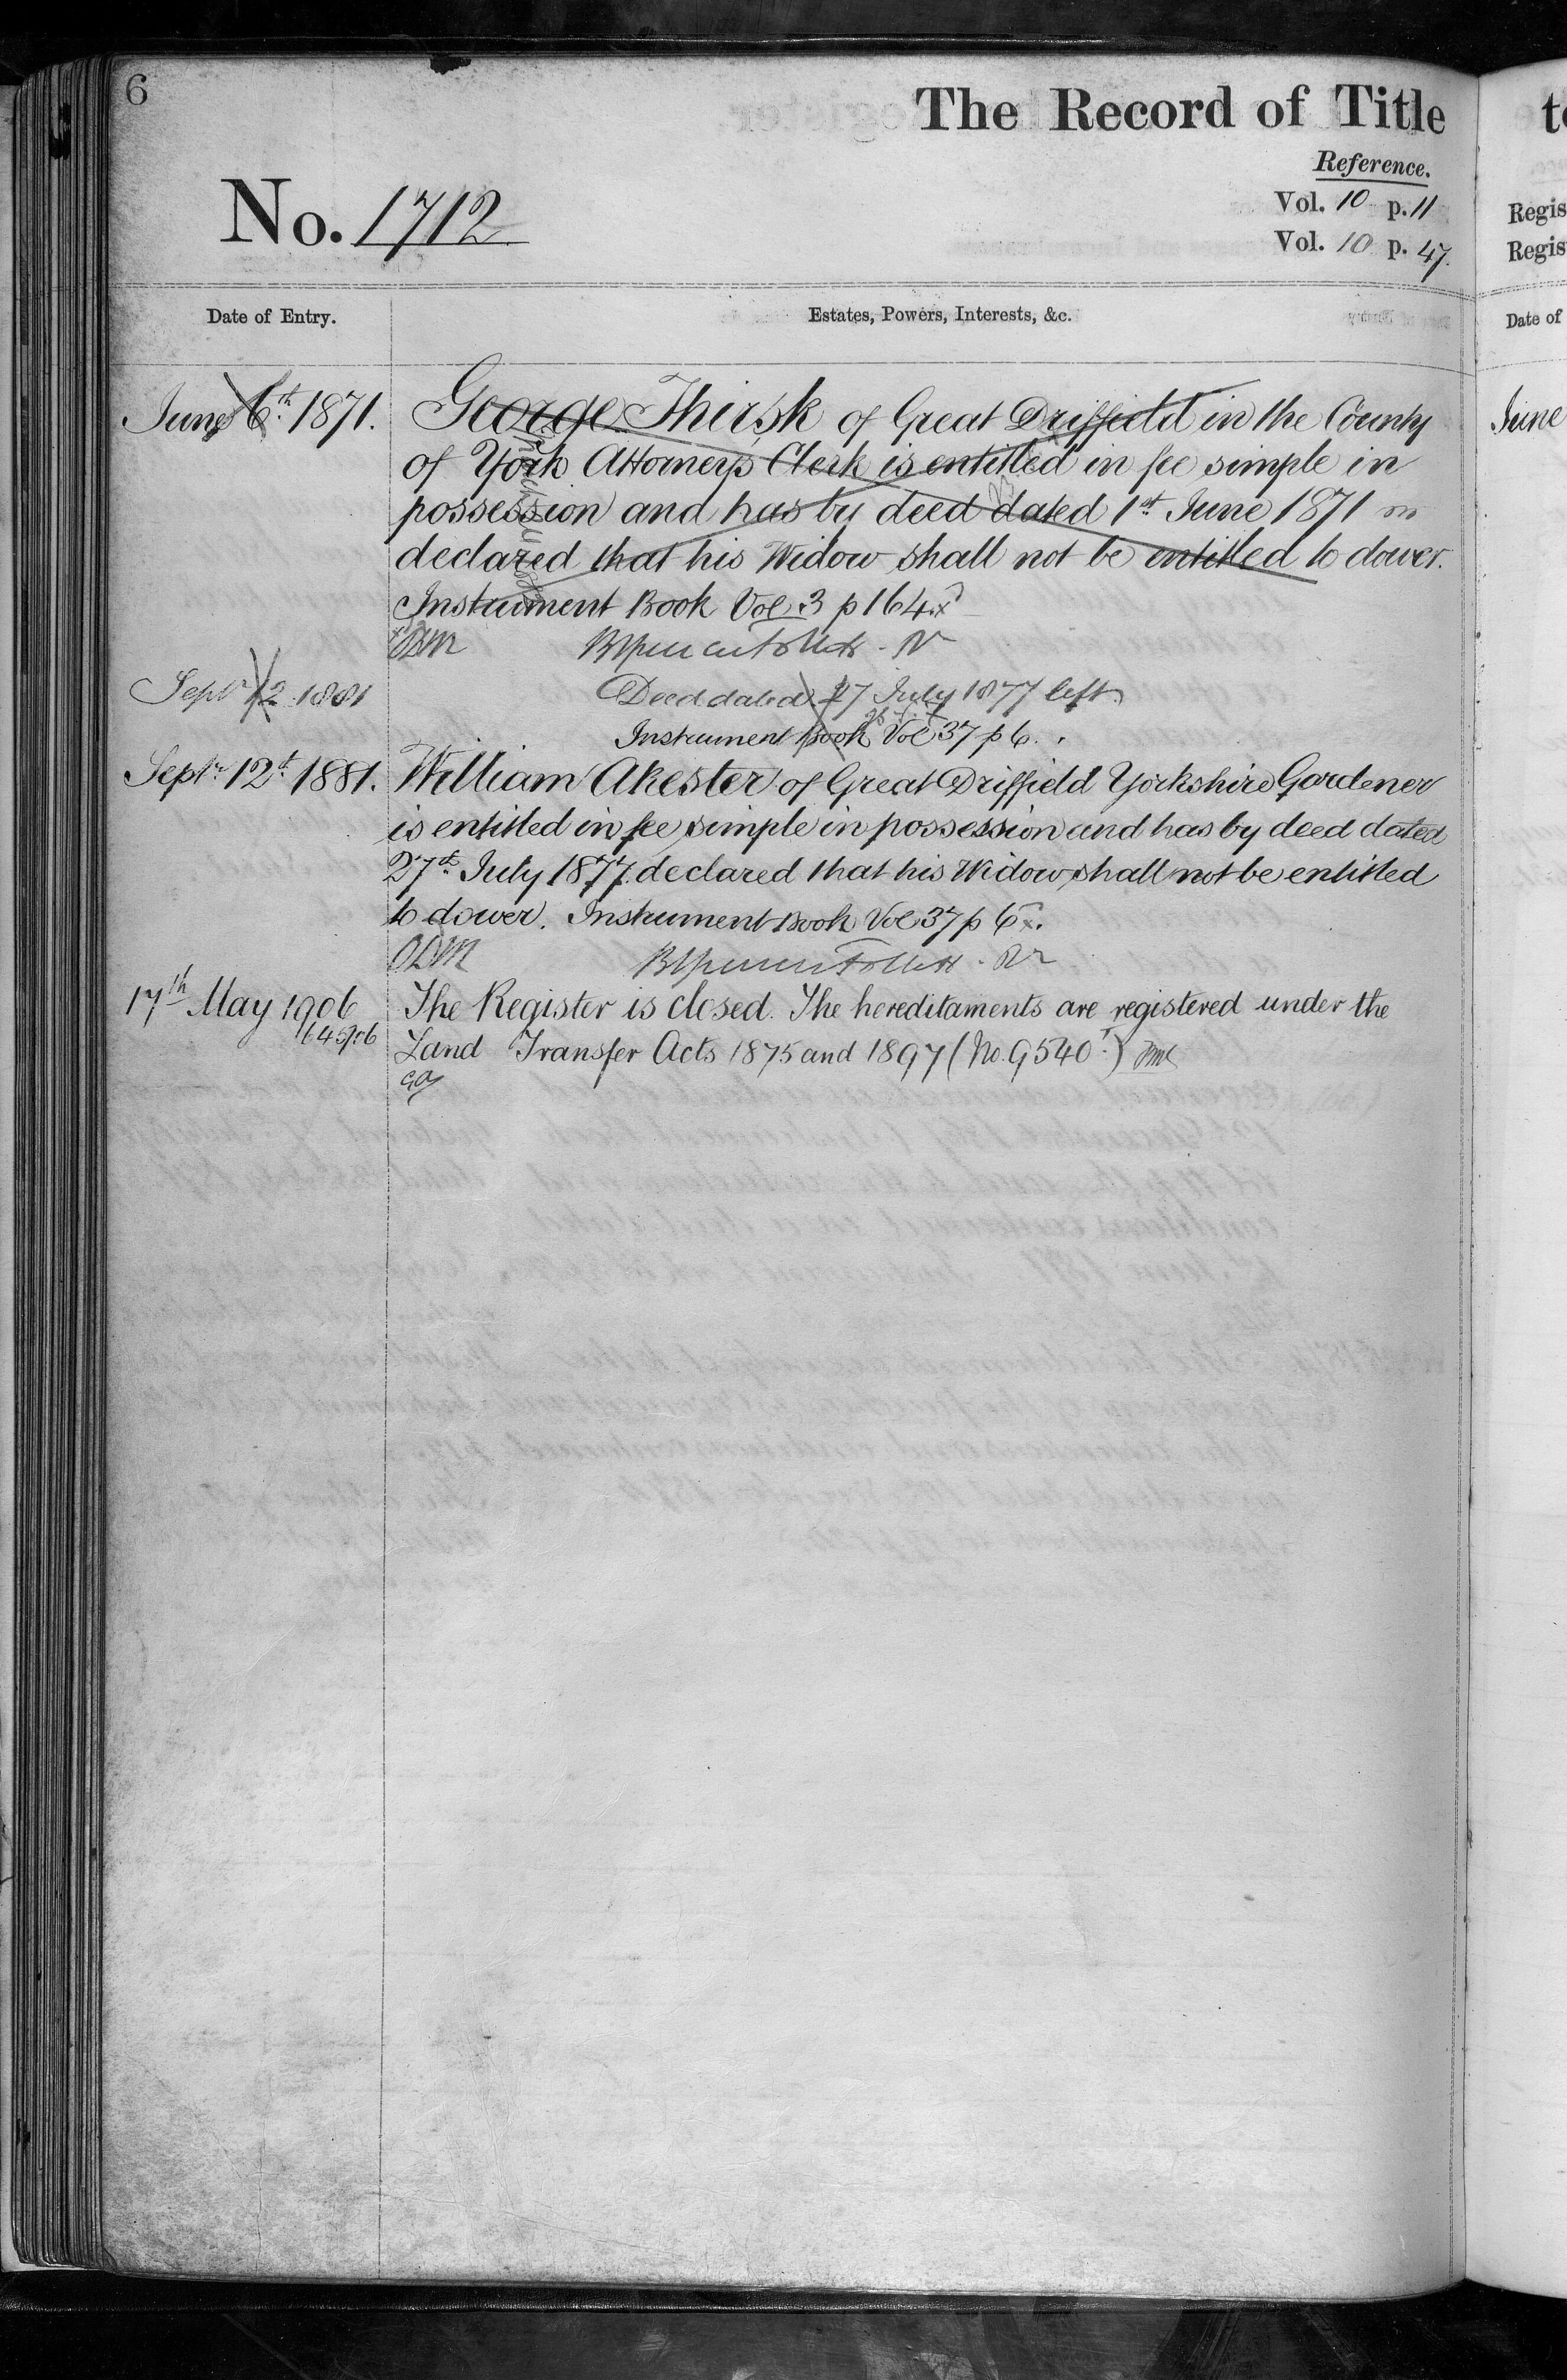 6
The Record of Title
Reference.
No. 1712
Vol. 10 p. 11
Vol. 10 p. 47.
Date of Entry.
Estates, Powers, Interests, &c.
June 6.th 1871.
George Thirsk of Great Driffield in the County
of York Attorney's Clerk is entitled in fee simple in
possession and has by deed dated 1st June 1871
declared that his Widow shall not be entitled to dower.
Instrument Book Vol. 3 p 164.
Septr 12 1881
Deed dated 27 July 1877 left
Instrument Book Vol 37 p 6.
Septr 12th 1881.
William Akester of Great Driffield Yorkshire Gardener
is entitled in fee simple in possession and has by deed dated
27th July 1877 declared that his Widow shall not be entitled
to dower. Instrument Book Vol 37 p 6.
ODM
17th May 1906
The Register is closed. The hereditaments are registered under the
Land Transfer Acts 1875 and 1897 (No. 9540.)
Regis
Regis
Date of
June